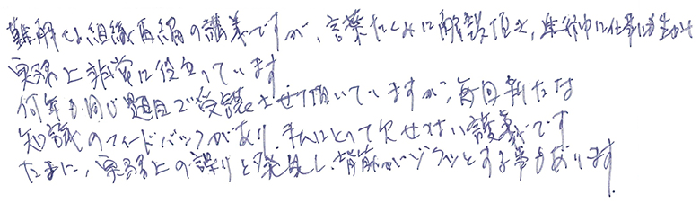 難解な組織再編の講義ですが、言葉たくみに解説頂き、
実務上非常に役立っています
何年も同じ題目で受講させて頂いていますが、毎回新たな
知識のフィードバックがあり、私にとって欠せない講義です
たまに、実務上の誤りを発見し、背筋がゾクッとする事もあります。